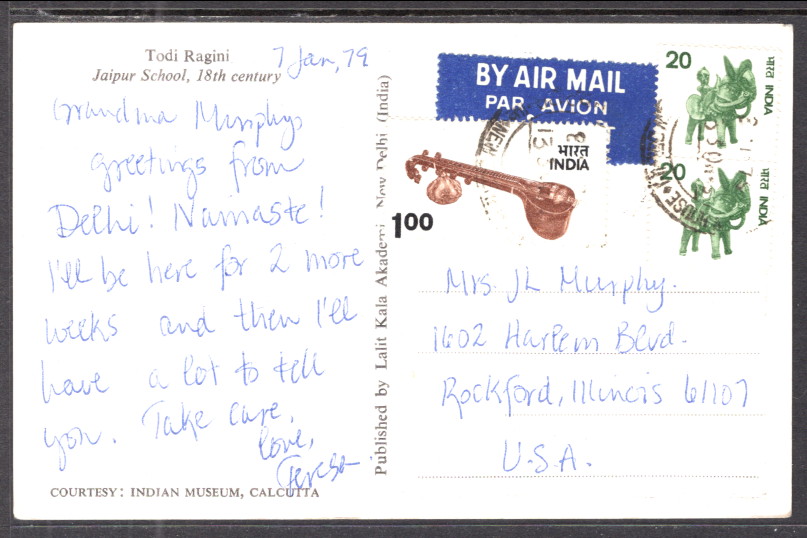 Todi Ragini
Jaipur School, 18th century
7 Jan, 79
Grandma Murphy,
greetings from
Delhi! Namaste!
I'll be here for 2 more
weeks and then I'll
have a lot to tell
you. Take care,
love,
Teresa
COURTESY: INDIAN MUSEUM, CALCUTTA
Published by Lalit Kala Akademi New Delhi (India)
BY AIR MAIL
PAR AVION
भारत
INDIA
100
20
भारत INDIA
20
भारत INDIA
Mrs. JL Murphy.
1602 Harlem Blvd.
Rockford, Illinois 61107
U.S.A.